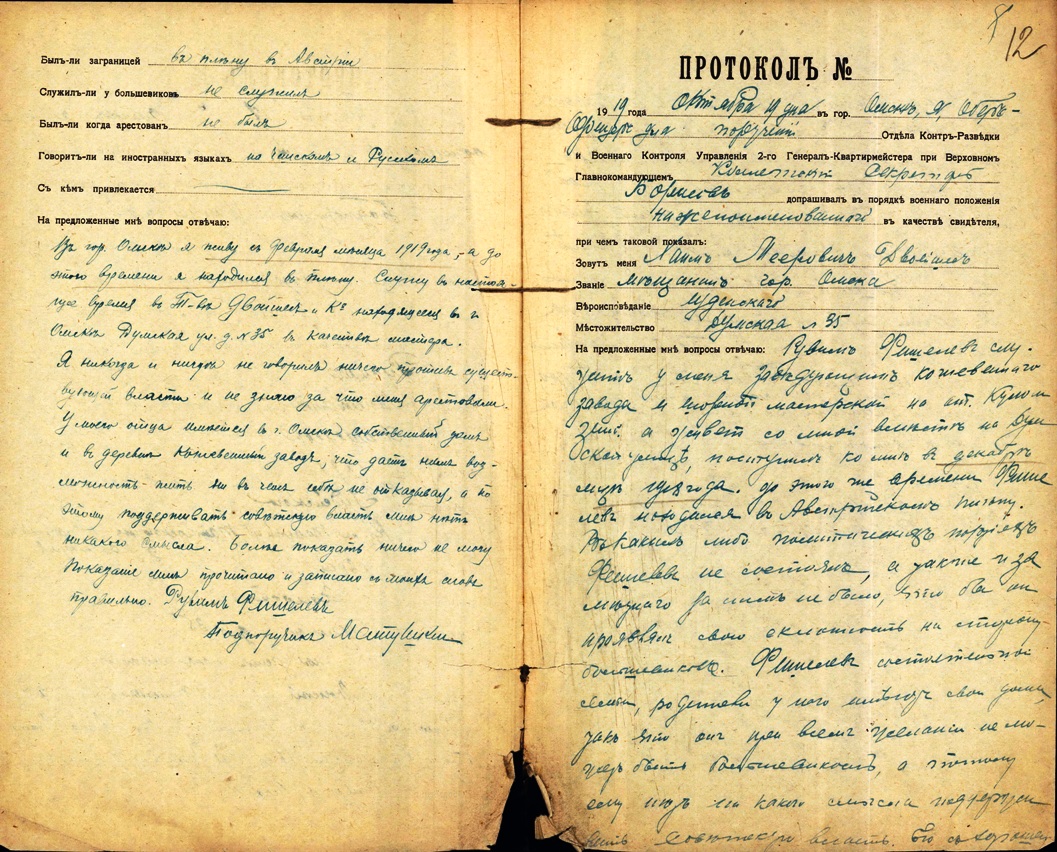 Былъ-ли заграницей въ плѣну въ Австріи
Служилъ-ли у большевиковъ не служилъ
Былъ-ли когда арестованъ не былъ
Говоритъ-ли на иностранныхъ языкахъ на чешскомъ и Русскомъ
Съ кѣмъ привлекается
На предложенные мнѣ вопросы отвѣчаю:
Въ гор. Омскѣ я живу съ февраля мѣсяца 1919 года, а до
этого времени я находился въ плѣну. Служу въ настоя-
щее время въ Т-вѣ Двойнесъ и Кº находящееся въ г.
Омскѣ Думская ул. д. № 35 въ качествѣ мастера.
Я никогда и нигдѣ не говорилъ ничего противъ сущест-
вующей власти и не знаю за что меня арестовали.
У моего отца имѣется въ г. Омскѣ собственный домъ
и въ деревнѣ Кожевенный заводъ, что даетъ намъ воз-
можность жить ни въ чемъ себѣ не отказывая, а по
этому поддерживать совѣтскую власть мнѣ нѣтъ
никакого смысла. Болѣе показать ничего не могу
Показаніе мнѣ прочитано и записано съ моихъ словъ
правильно. Рувимъ Фишелевъ
Подпоручикъ
12
ПРОТОКОЛЪ №
1919 года Октября 19 дня въ гор. Омскѣ, Я, Оберъ-
Офицеръ для порученій Отдѣла Контръ-Развѣдки
и Военнаго Контроля Управленія 2-го Генералъ-Квартирмейстера при Верховномъ
Главнокомандующемъ, Коллежскій Секретарь
Борисовъ допрашивалъ въ порядкѣ военнаго положенія
нижепоименованнаго въ качествѣ свидѣтеля,
при чемъ таковой показалъ:
Зовутъ меня Хаимъ Мееровичъ Двойнесъ
Званіе мѣщанинъ гор. Омска
Вѣроисповѣданіе Іудейскаго
Мѣстожительство Думская № 35
На предложенные мнѣ вопросы отвѣчаю: Рувимъ Фишелевъ слу-
житъ у меня завѣдующимъ кожевеннаго
завода и мастерской на ст. Кулом
зино, а живетъ со мной вмѣстѣ на Дум
ской улицѣ, поступилъ ко мнѣ въ декабрѣ
мцѣ 1918 года. До этого же времени Фише
левъ находился въ Австрійскомъ плѣну.
Въ какихъ либо политическихъ партіяхъ
Фишелевъ не состоялъ, а также и за
не было, что бы онъ
проявлялъ свою склонность на сторону
большевиковъ. Фишелевъ состоятельной
семьи, родители у него имѣютъ свои дома,
такъ что онъ при всемъ желаніи не мо-
жетъ быть большевикомъ, а потому
ему нѣтъ ни какого смысла поддержи
вать Совѣтскую власть. Его